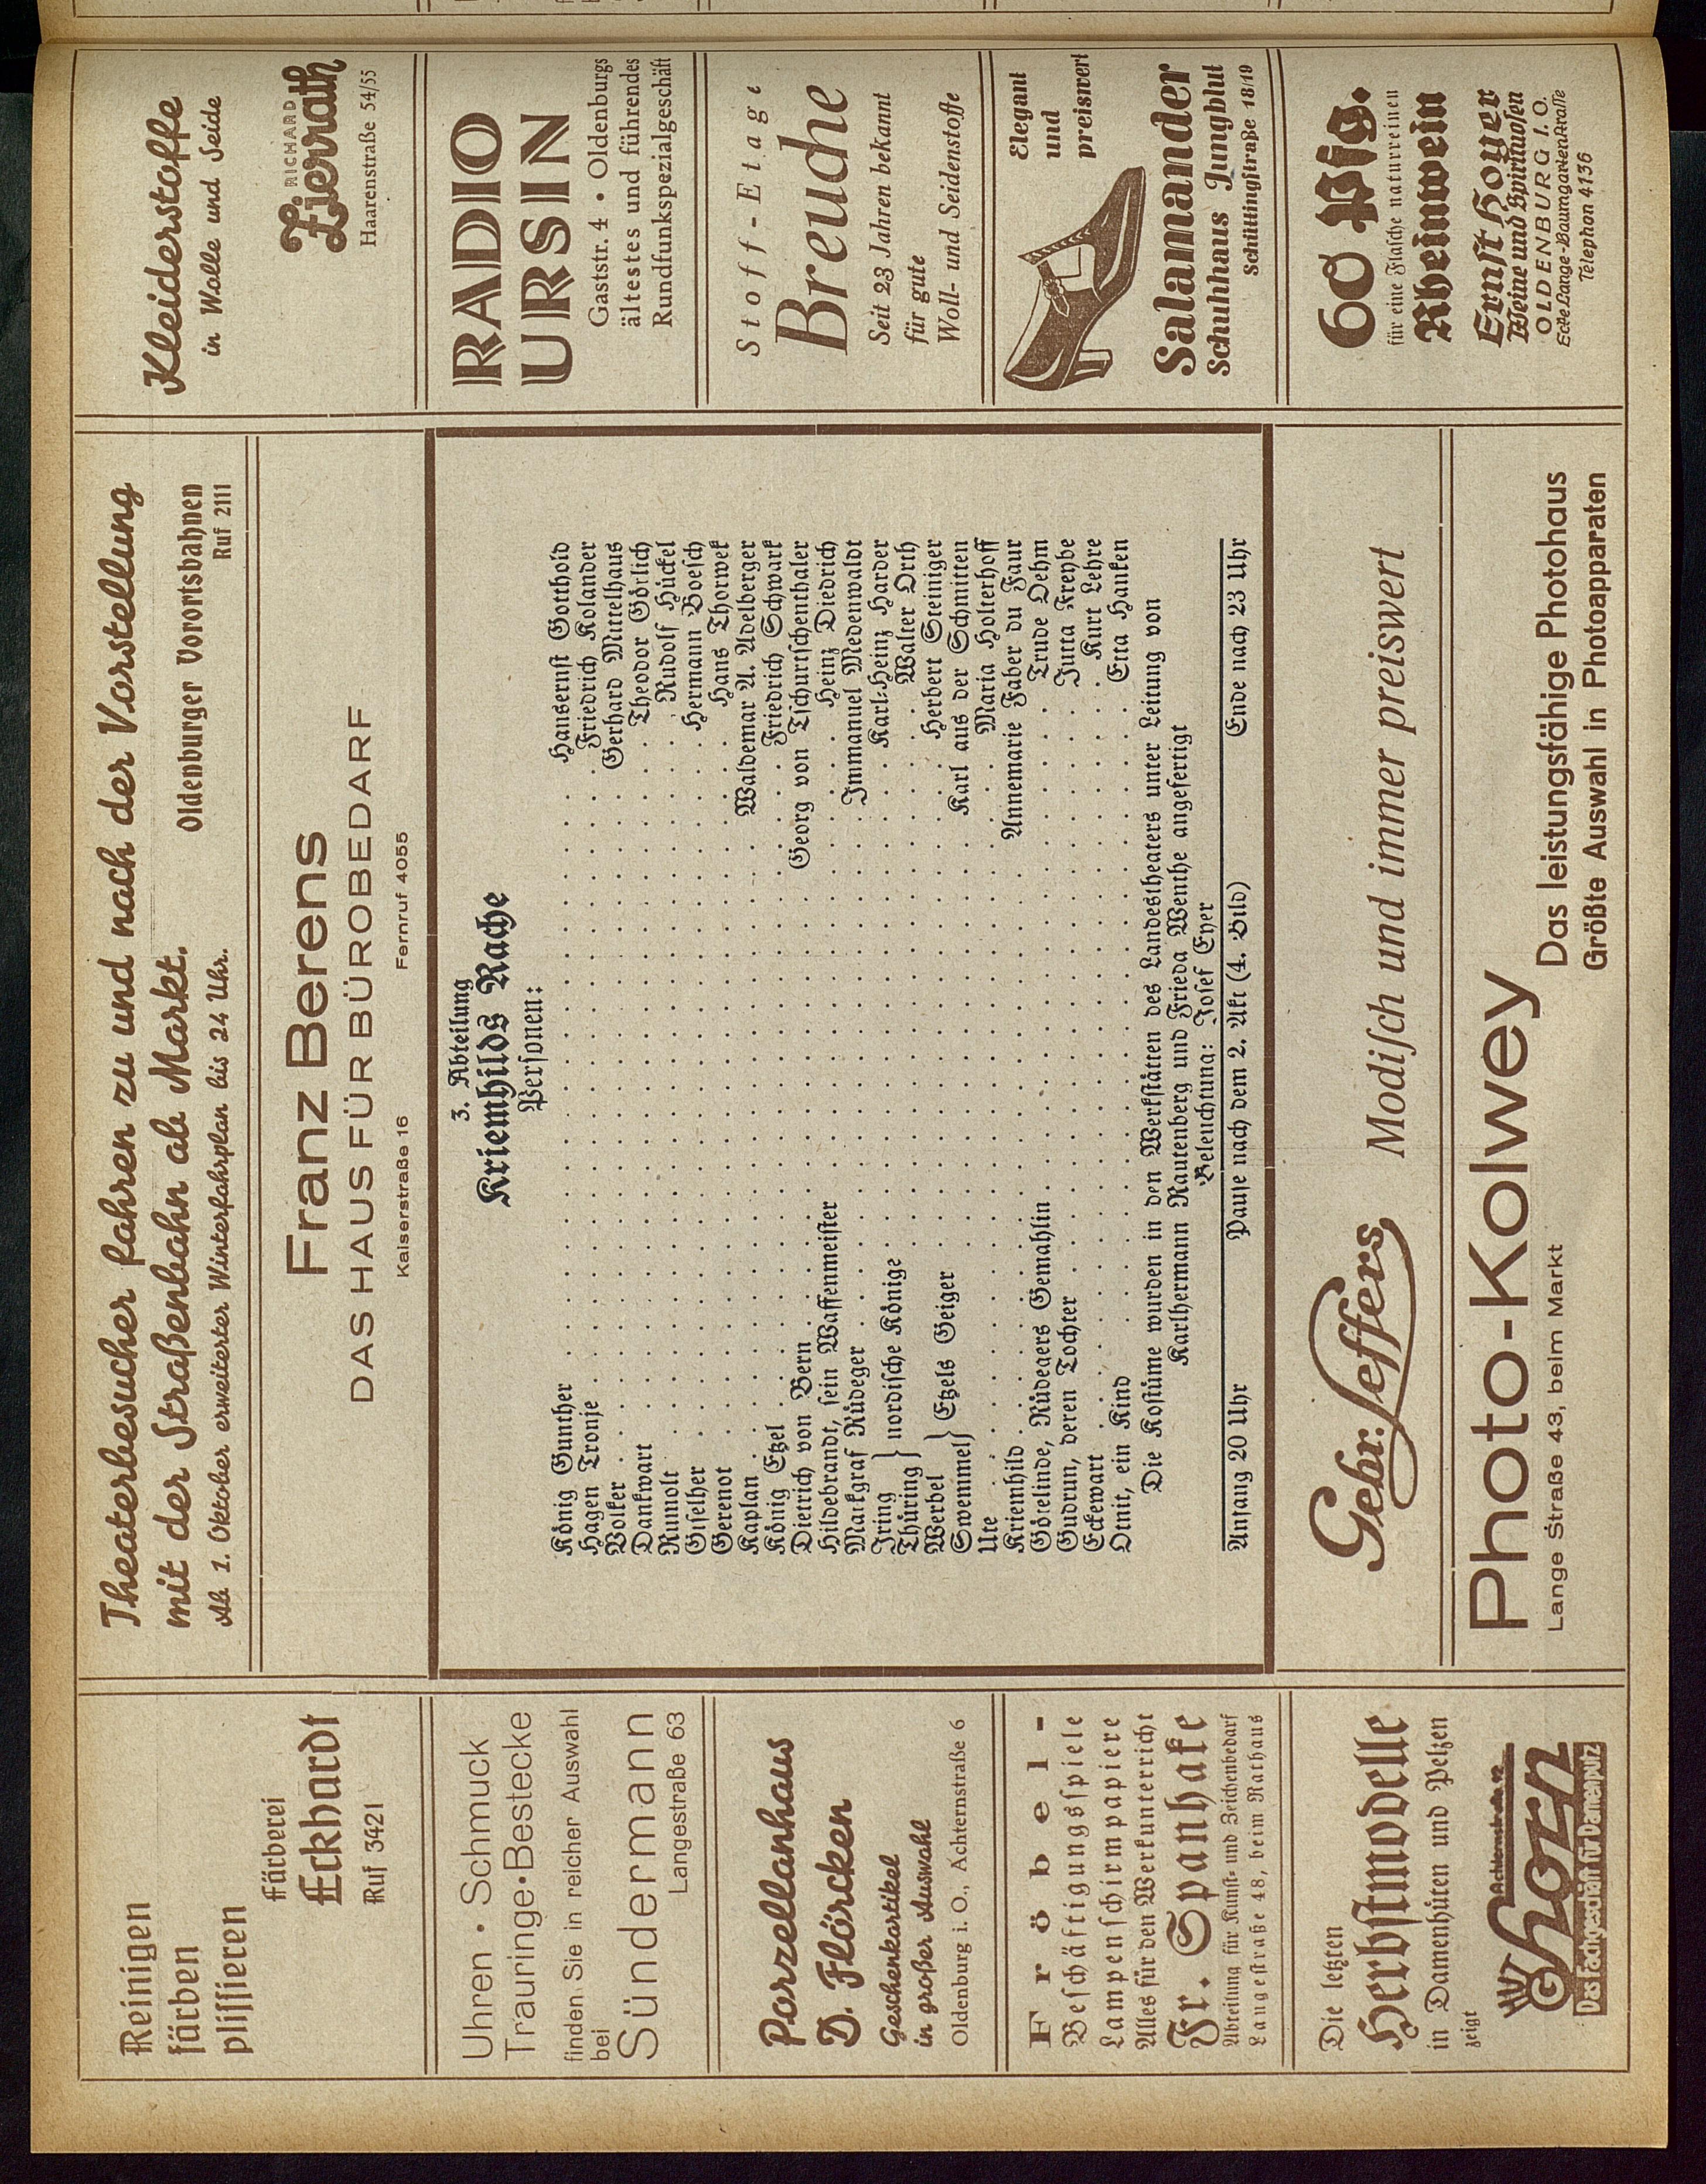 Reinigen
färben
plissieren
Färberei
Eckhardt
Ruf 3421
Uhren • Schmuck
Trauringe•Bestecke
finden Sie in reicher Auswahl
bei
Sündermann
Langestraße 63
Porzellanhaus
D. Flörcken
Geschenkartikel
in großer Auswahl
Oldenburg i. O., Achternstraße 6
Fröbel-
Beschäftigungsspiele
Lampenschirmpapiere
Alles für den Werkunterricht
Fr. Spanhake
Abteilung für Kunst- und Zeichenbedarf
Langestraße 48, beim Rathaus
Die letzten
Herbstmodelle
in Damenhüten und Pelzen
zeigt
HUT
G Horn
Das Fachgeschäft für Damenputz
Theaterbesucher fahren zu und nach der Vorstellung
mit der Straßenbahn ab Markt.
Oldenburger Vorortsbahnen
Ab 1. Oktober erweiterter Winterfahrplan bis 24 Uhr.
Ruf 2111
Franz Berens
DAS HAUS FÜR BÜROBEDARF
Kaiserstraße 16 Fernruf 4055
3. Abteilung
Kriemhilds Rache
Personen:
König Gunther . . . Hansernst Gotthold
Hagen Tronje . . . Friedrich Kolander
Volker . . . Gerhard Mittelhaus
Dankwart . . . Theodor Görlich
Rumolt . . . Rudolf Hückel
Giselher . . . Hermann Boesch
Gerenot . . . Hans Thorwek
Kaplan . . . Waldemar A. Adelberger
König Etzel . . . Friedrich Schwark
Dietrich von Bern . . . Georg von Tschurtschenthaler
Hildebrandt, sein Waffenmeister . . . Heinz Diedrich
Markgraf Rüdeger . . . Immanuel Medenwaldt
Iring } nordische Könige . . . Karl-Heinz Harder
Thüring . . . Walter Orth
Werbel } Etzels Geiger . . . Herbert Steiniger
Swemmel . . . Karl aus der Schmitten
Ute . . . Maria Holterhoff
Kriemhild . . . Annemarie Faber du Faur
Götelinde, Rüdegers Gemahlin . . . Trude Oehm
Gudrun, deren Tochter . . . Jutta Freybe
Eckewart . . . Kurt Lehre
Otnit, ein Kind . . . Etta Hanken
Die Kostüme wurden in den Werkstätten des Landestheaters unter Leitung von
Karlhermann Rautenberg und Frieda Wenthe angefertigt
Beleuchtung: Josef Eyer
Anfang 20 Uhr Pause nach dem 2. Akt (4. Bild) Ende nach 23 Uhr
Gebr. Leffers Modisch und immer preiswert
Photo-Kolwey
Lange Straße 43, beim Markt
Das leistungsfähige Photohaus
Größte Auswahl in Photoapparaten
Kleiderstoffe
in Wolle und Seide
RICHARD
Zierrath
Haarenstraße 54/55
RADIO
URSIN
Gaststr. 4 • Oldenburgs
ältestes und führendes
Rundfunkspezialgeschäft
Stoff-Etage
Breuche
Seit 23 Jahren bekannt
für gute
Woll- und Seidenstoffe
Elegant
und
preiswert
Salamander
Schuhhaus Jungblut
Schüttingstraße 18/19
60 Pfg.
für eine Flasche naturreinen
Rheinwein
Ernst Hoyer
Weine und Spirituosen
OLDENBURG I. O.
Ecke Lange-Baumgartenstraße
Telephon 4136